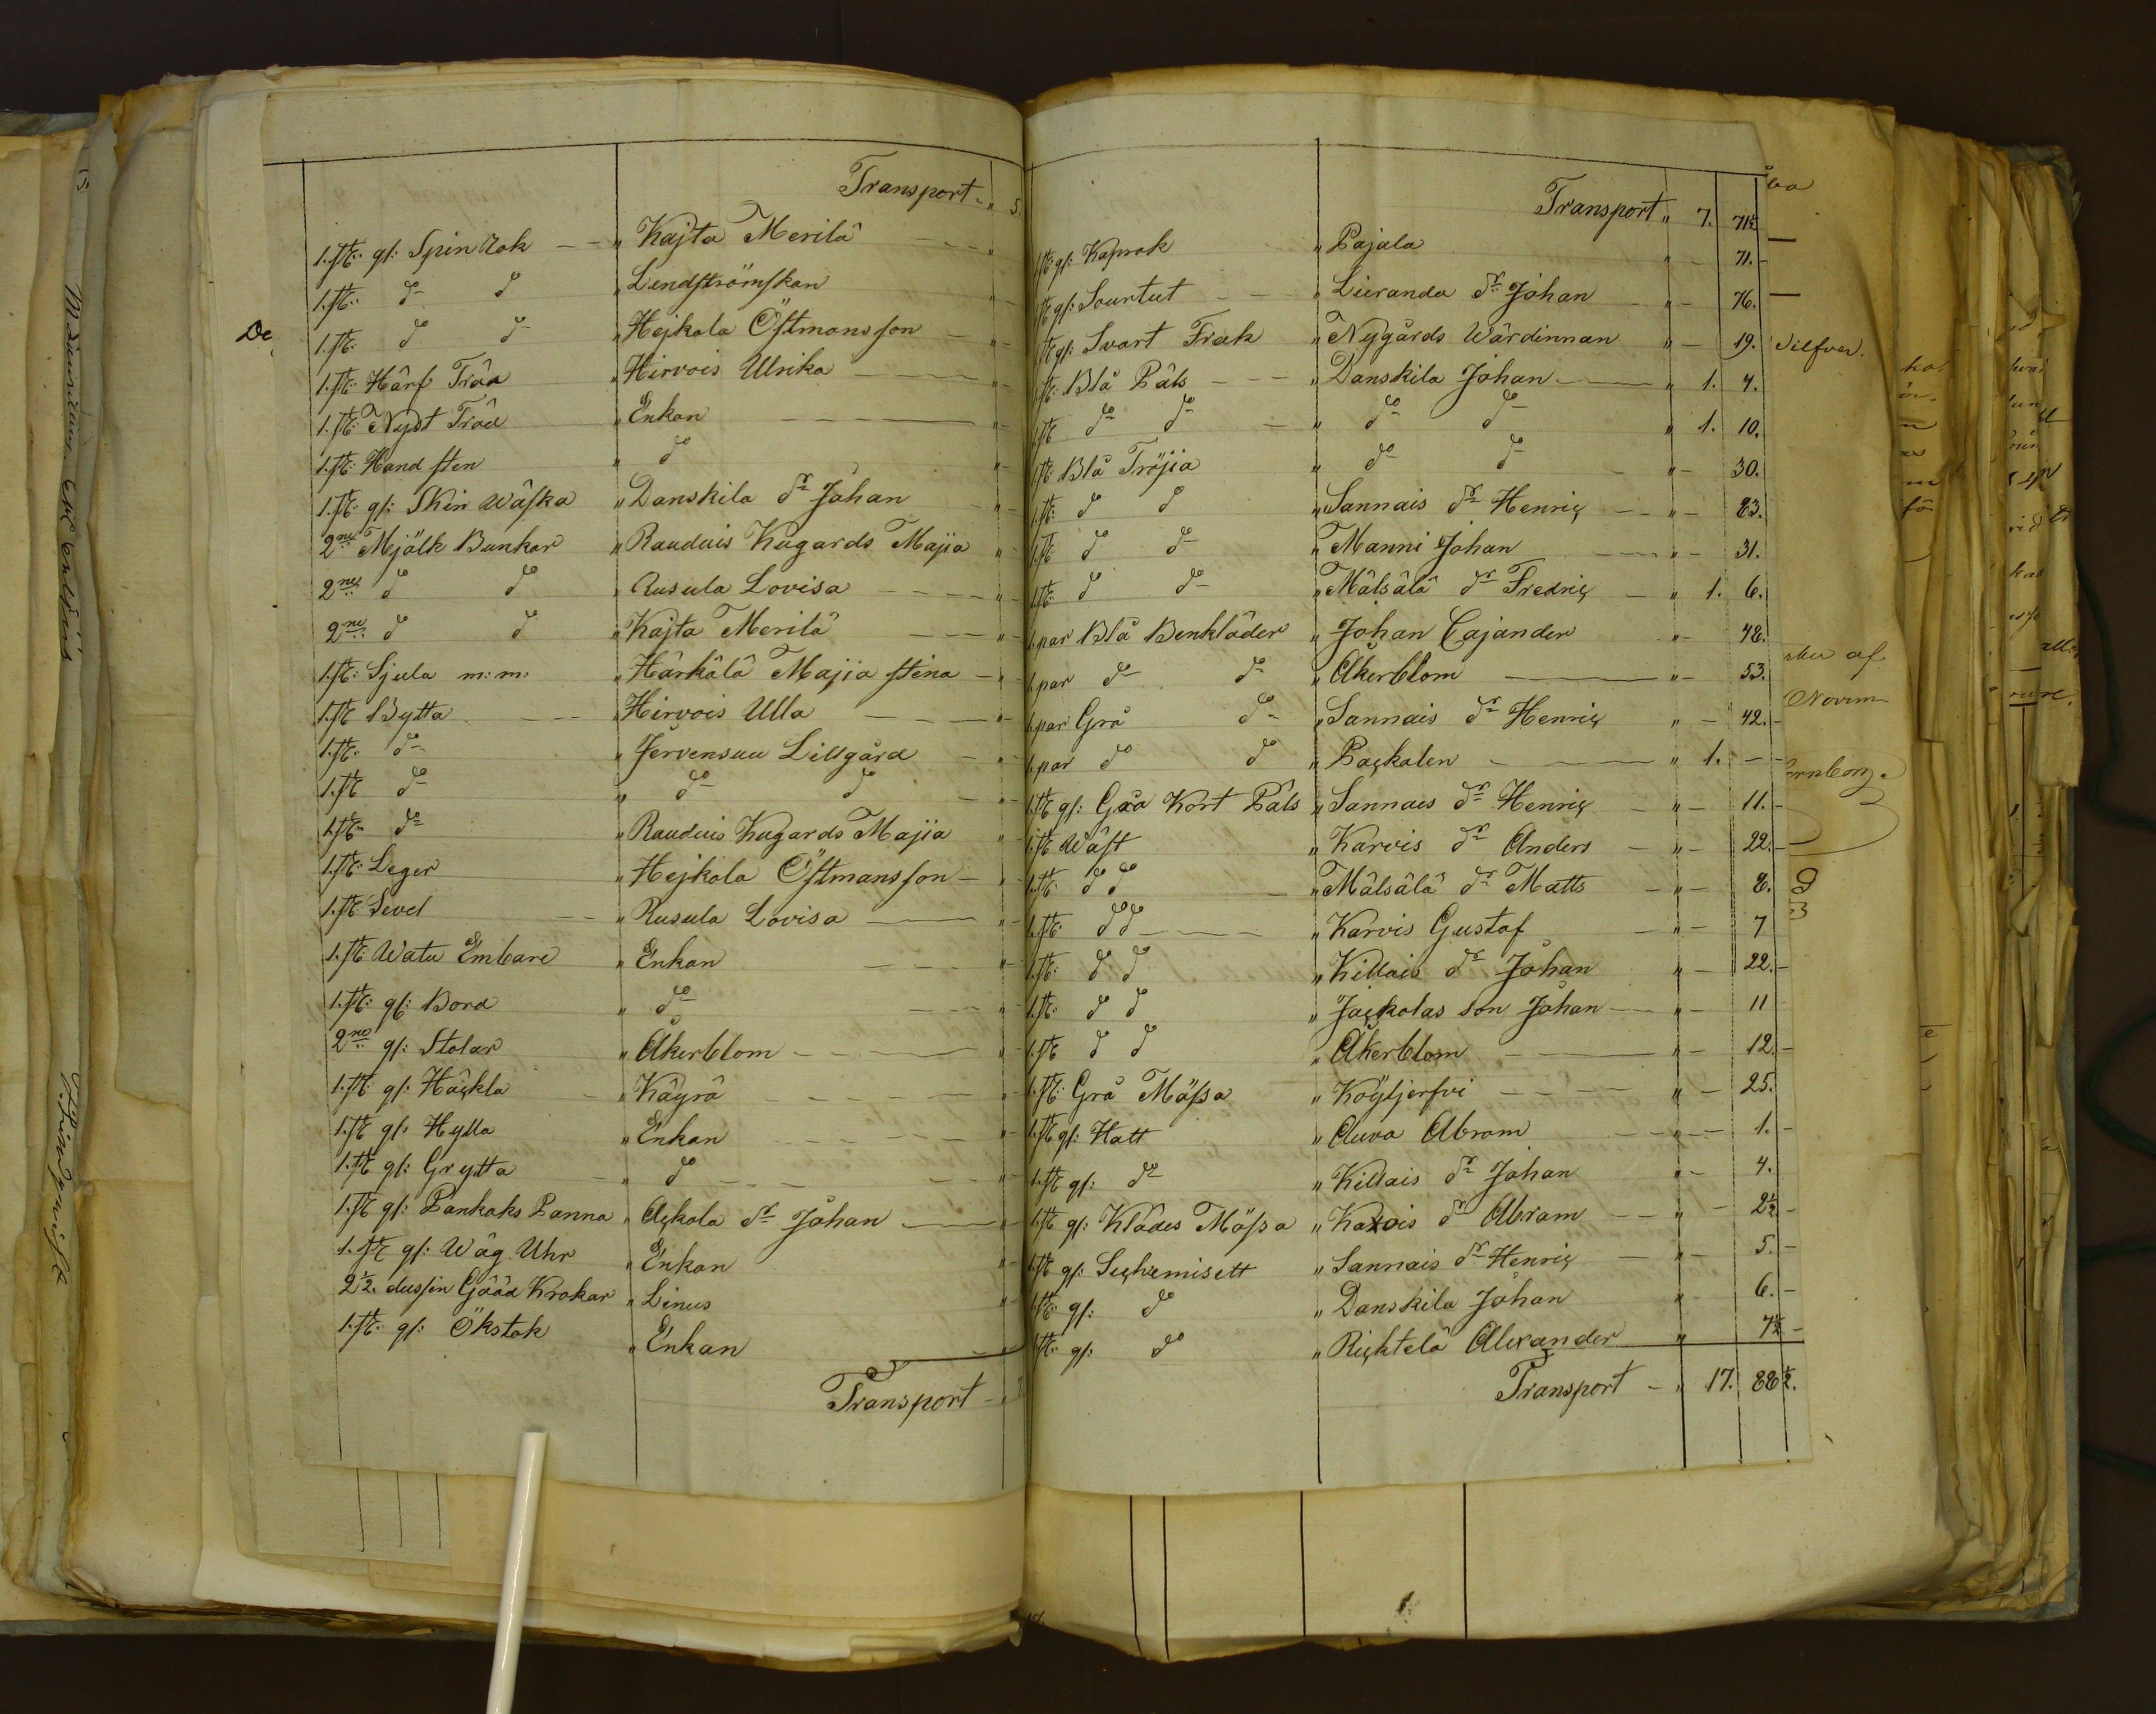 Transport " 5.
1. st: gl: Spin Rok — " Kajta Merilä
1. st: do do " Lendströmskan
1. st: do do " Hejkola Östmansson
1. st: Härf Träa " Hirvois Ulrika
1. st: Nyst Träd " Enkan
1. st: Hand sten " do
1. st: gl: Skin Wäska " Danskila dr Johan
2ne Mjölk Bunkar " Rauduis Kugards Majia
2ne do do " Rusula Lovisa
2ne do do " Kajta Merilä
1. st: Sjula m: m: " Härkälä Majia stina
1. st Bytta " Hirvois Ulla
1. st: do " Jervensuu Lillgård
1. st do " do do
1. st: do " Rauduis Kugards Majia
1. st: Leger " Hejkola Östmansson
1. st: Sevel " Rusula Lovisa
1. st: Watu Embare " Enkan
1. st: gl: Bord " do
2ne gl: Stolar " Åkerblom
1. st: gl: Häckla " Käyrä
1. st gl: Hylla " Enkan
1. st gl: Grytta " do
1. st gl: Pankaks Panna " Ackola dr Johan
1. st gl: Wäg Uhr " Enkan
2½. dussin Gääd Krokar " Linus
1. st: gl: Ökstok " Enkan
Transport
Transport " 7. 71½
1 st: gl: Kaprok " Pajala " — 71.
1 st gl: Sourtut " Lieranda dr Johan " — 76.
1 st gl: Svart Frak " Nygårds Wärdinnan " — 19.
1 st: Blå Päls " Danskila Johan " 1. 4.
1 st do do " do do " 1. 10.
1 st: Blå Tröjia " do do " — 30.
1 st: do do " Sannais dr Henric " — 83.
1 st: do do " Manni Johan " — 31.
1 st: do do " Mälsälä dr Fredric " 1. 6.
1. par Blå Benkläder " Johan Cajander " — 48.
1. par do do " Åkerblom " — 53.
1. par Grå do " Sannais dr Henric " — 42.
1. par do do " Packalen " 1. —
1. st gl: Gråa Kort Päls " Sannaes dr Henric " — 11.
1. st Wäst " Karvis dr Anders " — 22.
1. st: do do " Mälsälä dr Matts " — 8.
1. st: do do " Karvis Gustaf " — 7
1. st: do do " Killais dr Johan " — 22.
1. st: do do " Jackolas son Johan " — 11
1. st do do " Åkerblom " — 12.
1. st: Grå Mössa " Köyljerfvi " — 25.
1. st gl: Hatt " Auva Abram " — 1.
1. st gl: do " Killais dr Johan " — 4.
1. st gl: Klädes Mössa " Karvis dr Abram " — 2½
1. st gl: Sechemisett " Sannais dr Henric " — 5.
1 st: gl: do " Danskila Johan " — 6.
1 st: gl: do " Ricktelä Alexander " 7½
Transport " 17. 88½.
De
Silfver.
af
Novem